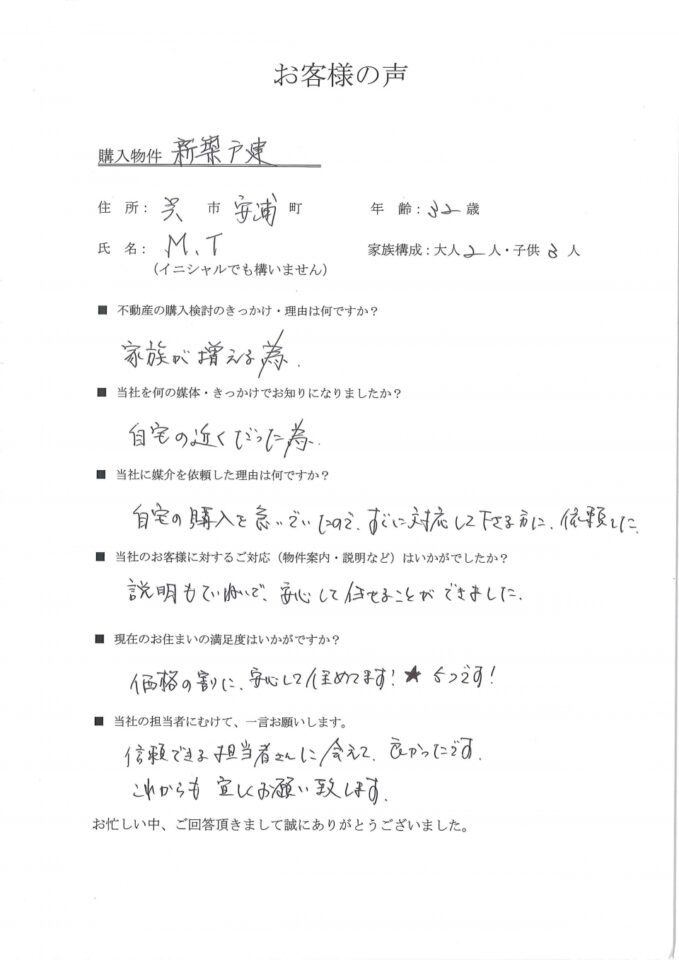 お客様の声
購入物件 新築戸建
住 所： 呉 市 安浦 町 年 齢：32歳
氏 名： M.T 家族構成：大人 2 人・子供 3 人
（イニシャルでも構いません）
■ 不動産の購入検討のきっかけ・理由は何ですか？
家族が増える為.
■ 当社を何の媒体・きっかけでお知りになりましたか？
自宅の近くだった為.
■ 当社に媒介を依頼した理由は何ですか？
自宅の購入を急いでいたので、すぐに対応して下さる方に、依頼した.
■ 当社のお客様に対するご対応（物件案内・説明など）はいかがでしたか？
説明もていねいで、安心して任せることができました.
■ 現在のお住まいの満足度はいかがですか？
価格の割に、安心して住めてます！ ★ 5つです！
■ 当社の担当者にむけて、一言お願いします。
信頼できる担当者さんに会えて、良かったです.
これからも宜しくお願い致します.
お忙しい中、ご回答頂きまして誠にありがとうございました。